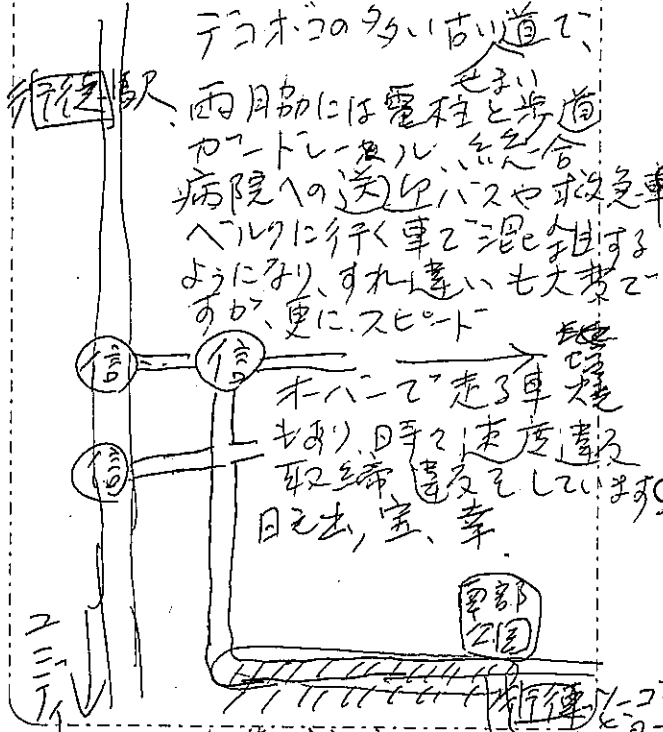 デコボコの多い古い道で、
せまい
行徳駅
両脇には電柱と歩道
ガードレール、総合
病院への送迎バスや救急車
ベルクに行く車で混雑する
ようになり、すれ違いも大変で
すが、更に、スピード
信
信
オーバーで走る車
もあり、時々速度違反
信
取締違反をしています。
日之出、宝、幸
南部
公園
行徳